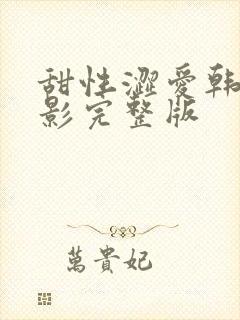 甜性澀愛韩
影完整版
萬貴妃